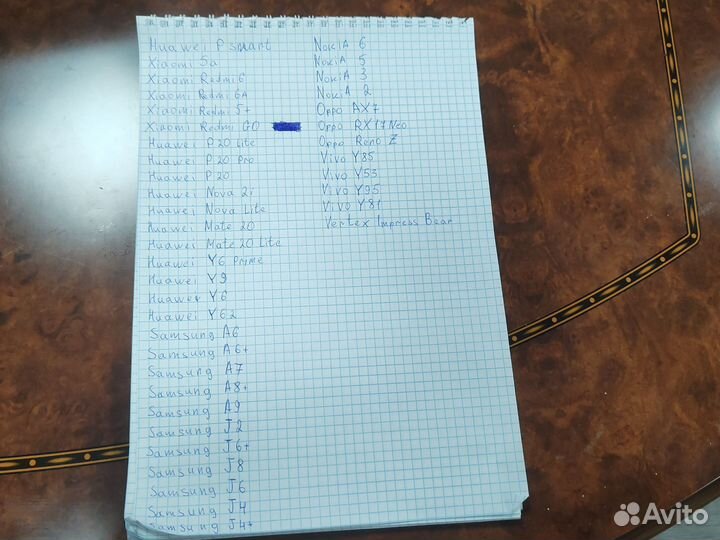 Huawei P smart
Xiaomi 5a
Xiaomi Redmi 6
Xiaomi Redmi 6A
Xiaomi Redmi 5+
Xiaomi Redmi GO
Huawei P20 Lite
Huawei P20 Pro
Huawei P20
Huawei Nova 2i
Huawei Nova Lite
Huawei Mate 20
Huawei Mate 20 Lite
Huawei Y6 Prime
Huawei Y9
Huawei Y6
Huawei Y6 2
Samsung A6
Samsung A6+
Samsung A7
Samsung A8+
Samsung A9
Samsung J2
Samsung J6+
Samsung J8
Samsung J6
Samsung J4
Samsung J4+
Nokia 6
Nokia 5
Nokia 3
Nokia 2
Oppo AX7
Oppo RX17 Neo
Oppo Reno Z
Vivo Y85
Vivo Y53
Vivo Y95
Vivo Y81
Vertex Impress Bear
Avito